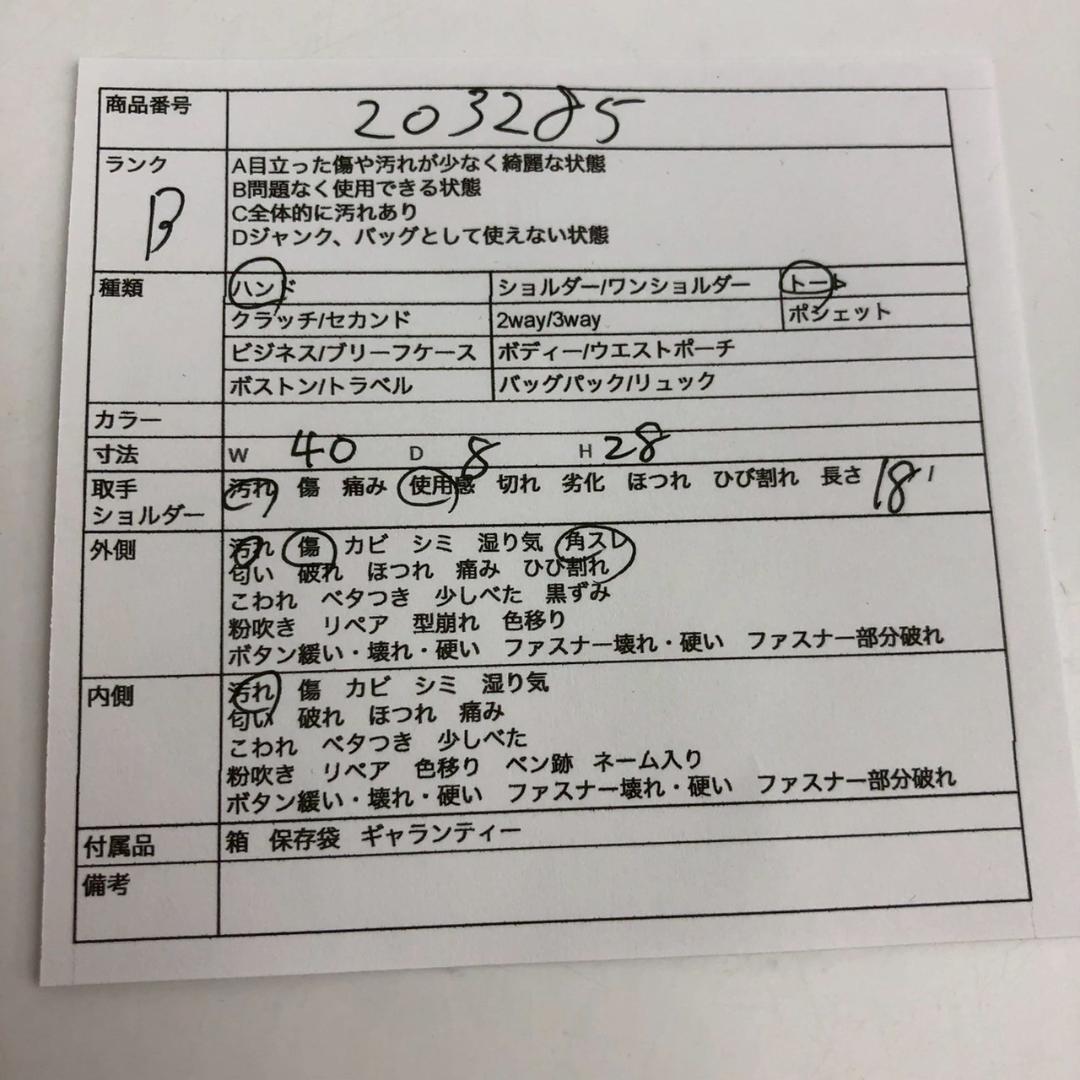 商品番号 203285
ランク B
A目立った傷や汚れが少なく綺麗な状態
B問題なく使用できる状態
C全体的に汚れあり
Dジャンク、バッグとして使えない状態
種類 ハンド ショルダー/ワンショルダー トート
クラッチ/セカンド 2way/3way ポシェット
ビジネス/ブリーフケース ボディー/ウエストポーチ
ボストン/トラベル バッグパック/リュック
カラー
寸法 W 40 D 8 H 28
取手 汚れ 傷 痛み 使用感 切れ 劣化 ほつれ ひび割れ 長さ 18
ショルダー
外側 汚れ 傷 カビ シミ 湿り気 角スレ
匂い 破れ ほつれ 痛み ひび割れ
こわれ ベタつき 少しべた 黒ずみ
粉吹き リペア 型崩れ 色移り
ボタン緩い・壊れ・硬い ファスナー壊れ・硬い ファスナー部分破れ
内側 汚れ 傷 カビ シミ 湿り気
匂い 破れ ほつれ 痛み
こわれ ベタつき 少しべた
粉吹き リペア 色移り ペン跡 ネーム入り
ボタン緩い・壊れ・硬い ファスナー壊れ・硬い ファスナー部分破れ
付属品 箱 保存袋 ギャランティー
備考